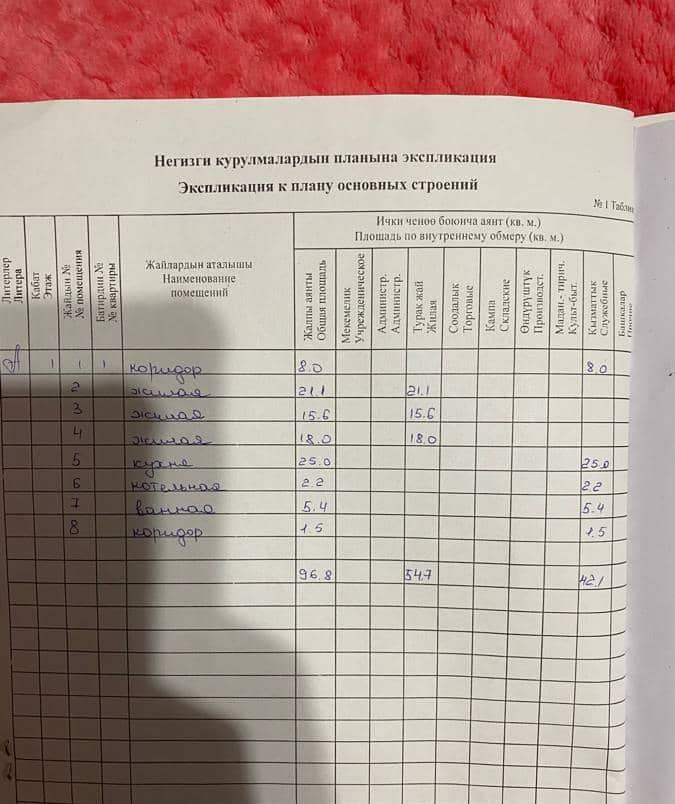 Негизги курулмалардын планына экспликация
Экспликация к плану основных строений
№ 1 Таблиц
Литерлер Литера
Кабат Этаж
Жайдын № № помещения
Батирдин № № квартиры
Жайлардын аталышы Наименование помещений
Ички ченөө боюнча аянт (кв. м.)
Площадь по внутреннему обмеру (кв. м.)
Жалпы аянты Общая площадь
Мекемелик Учрежденическое
Администр. Администр.
Турак жай Жилая
Соодалык Торговые
Кампа Складские
Өндүрүштүк Производст.
Мадан.- тирич. Культ-быт.
Кызматтык Служебные
Башкалар
А 1 1 1 коридор 8.0 8.0
2 жилая 21.1 21.1
3 жилая 15.6 15.6
4 жилая 18.0 18.0
5 кухня 25.0 25.0
6 котельная 2.2 2.2
7 ванная 5.4 5.4
8 коридор 1.5 1.5
96.8 54.7 42.1